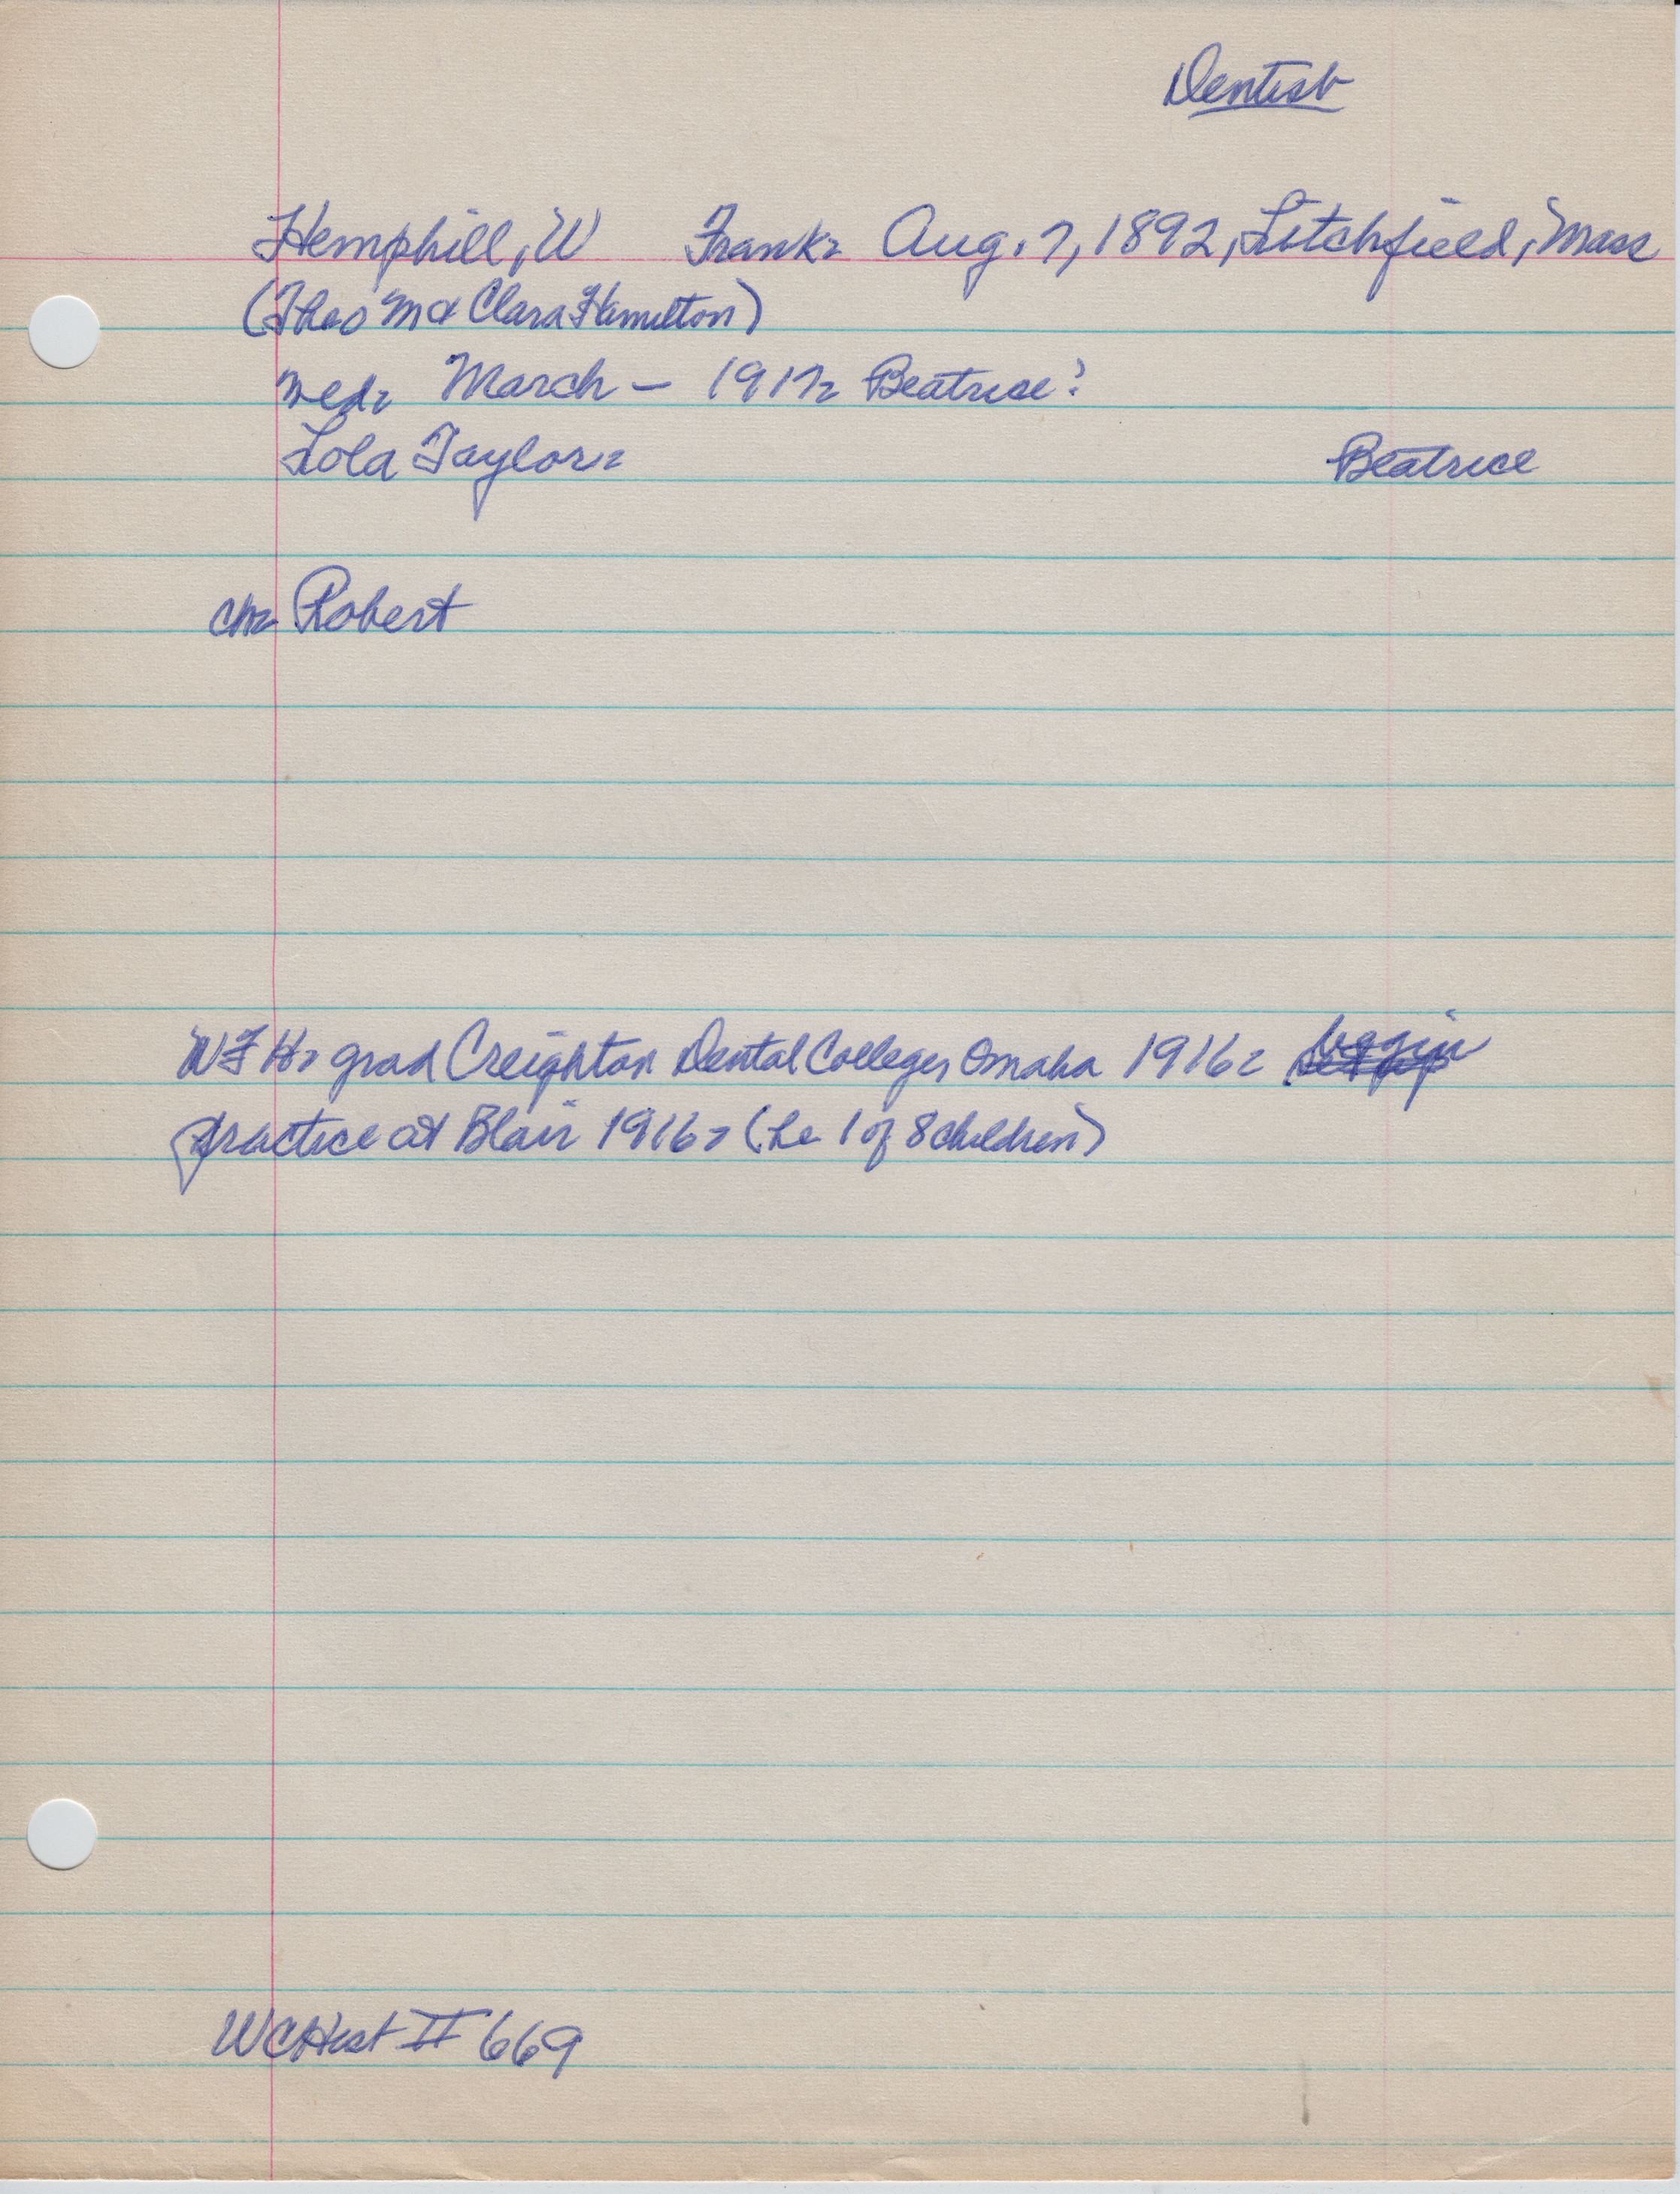 Dentist
Hemphill, W Frank: Aug. 7, 1892, Litchfield, Mass
(Theo M & Clara Hamilton)
med: March — 1917: Beatrice?
Lola Taylor: Beatrice
ch: Robert
WFH: grad Creighton Dental College, Omaha 1916: begin
practice at Blair 1916: (he 1 of 8 children)
WCHist II 669